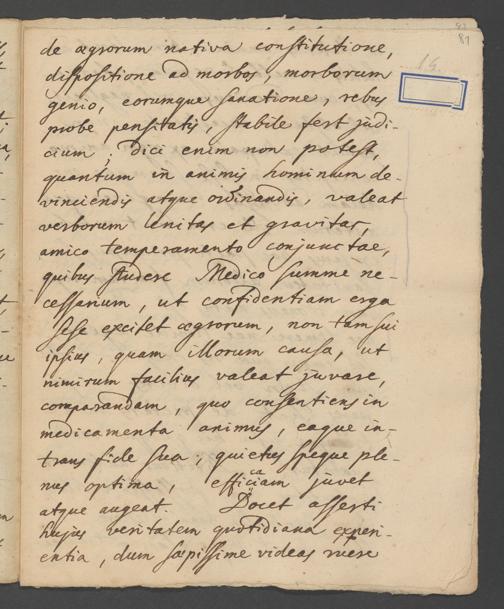 87
14.
de ægrorum nativa constitutione,
dispositione ad morbos, morborum
genio, eorumque sanatione, rebus
probe pensitatis, stabile fert judi-
cium; dici enim non potest,
quantum in animis hominum de-
vinciendis atque ordinandis, valeat
verborum unitas et gravitas,
amico temperamento conjunctae,
quibus studere Medico summe ne-
cessarium, ut confidentiam erga
sese excitet ægrorum, non tam sui
ipsius, quam illorum causa, ut
nimirum facilius valeat juvare,
comparandam, quo consentiens in
medicamenta animus, eaque in-
trans fide sua, quietus speque ple-
nus optima, efficaciam juvet
atque augeat. Docet asserti
hujus veritatem quotidiana experi-
entia, dum sæpissime videas vere